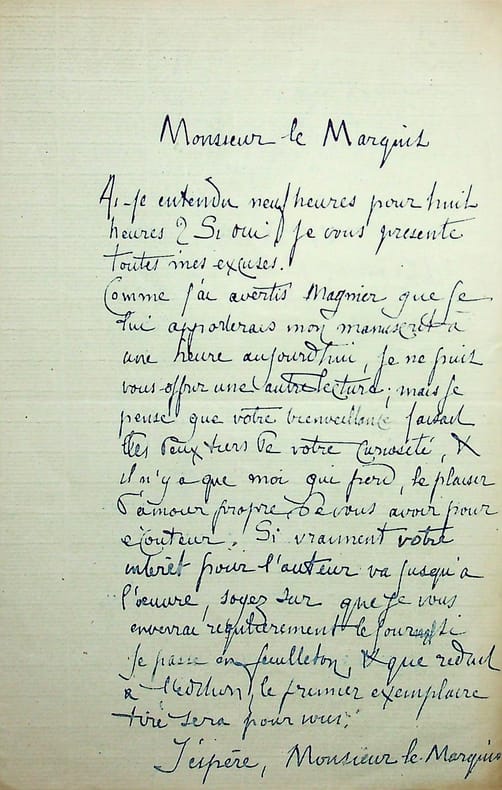 Monsieur le Marquis
Ai-je entendu neuf heures pour huit
heures ? Si oui, je vous présente
toutes mes excuses.
Comme j'ai avertis Magnier que je
lui apporterais mon manuscrit à
une heure aujourd'hui, je ne puis
vous offrir une autre lecture ; mais je
pense que votre bienveillante faisait
les deux tiers de votre curiosité, &
il n'y a que moi qui perd, le plaisir
d'amour propre de vous avoir pour
écouteur. Si vraiment votre
intérêt pour l'auteur va jusqu'à
l'oeuvre, soyez sur que je vous
enverrai régulièrement le journal si
je passe en feuilleton, & que réduit
à l'édition, le premier exemplaire
tiré sera pour vous.
J'éspère, Monsieur le Marquis